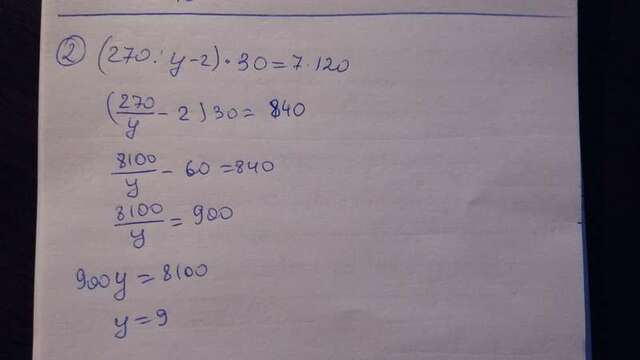 ② (270 : y - 2) · 30 = 7 · 120
(270/y - 2) 30 = 840
8100/y - 60 = 840
8100/y = 900
900y = 8100
y = 9